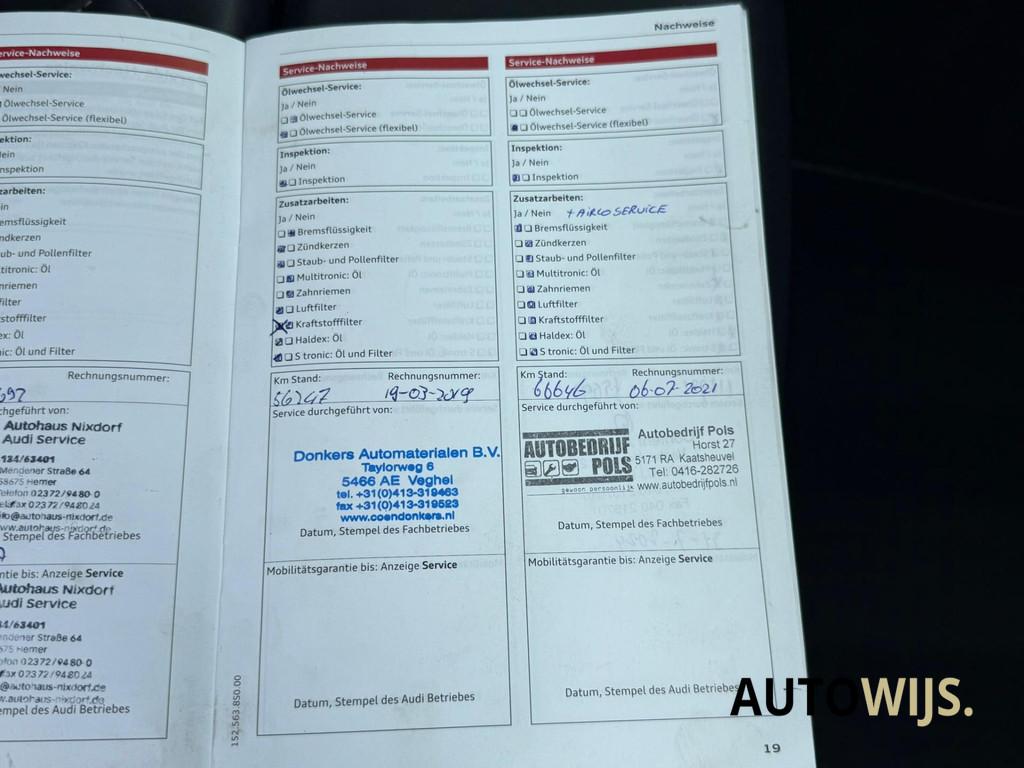 Nachweise
ervice-Nachweise
wechsel-Service:
Nein
Ölwechsel-Service
Ölwechsel-Service (flexibel)
ektion:
ein
nspektion
zarbeiten:
in
emsflüssigkeit
ndkerzen
aub- und Pollenfilter
ltitronic: Öl
nriemen
filter
stofffilter
ex: Öl
nic: Öl und Filter
Rechnungsnummer:
692
chgeführt von:
Autohaus Nixdorf
Audi Service
134/63401
Mendener Straße 64
58675 Hemer
elefon 02372/9480-0
elefax 02372/948024
nfo@autohaus-nixdorf.de
www.autohaus-nixdorf.de
Stempel des Fachbetriebes
ntie bis: Anzeige Service
Autohaus Nixdorf
udi Service
34/63401
ndener Straße 64
675 Hemer
efon 02372/9480-0
fax 02372/948024
@autohaus-nixdorf.de
w.autohaus-nixdorf.de
empel des Audi Betriebes
152.563.8S0.00
Service-Nachweise
Ölwechsel-Service:
Ja / Nein
Ölwechsel-Service
Ölwechsel-Service (flexibel)
Inspektion:
Ja / Nein
Inspektion
Zusatzarbeiten:
Ja / Nein
Bremsflüssigkeit
Zündkerzen
Staub- und Pollenfilter
Multitronic: Öl
Zahnriemen
Luftfilter
Kraftstofffilter
Haldex: Öl
S tronic: Öl und Filter
Km Stand: Rechnungsnummer:
56247 19-03-2019
Service durchgeführt von:
Donkers Automaterialen B.V.
Taylorweg 6
5466 AE Veghel
tel. +31(0)413-319463
fax +31(0)413-319523
www.coendonkers.nl
Datum, Stempel des Fachbetriebes
Mobilitätsgarantie bis: Anzeige Service
Datum, Stempel des Audi Betriebes
Service-Nachweise
Ölwechsel-Service:
Ja / Nein
Ölwechsel-Service
Ölwechsel-Service (flexibel)
Inspektion:
Ja / Nein
Inspektion
Zusatzarbeiten:
Ja / Nein + AIRCO SERVICE
Bremsflüssigkeit
Zündkerzen
Staub- und Pollenfilter
Multitronic: Öl
Zahnriemen
Luftfilter
Kraftstofffilter
Haldex: Öl
S tronic: Öl und Filter
Km Stand: Rechnungsnummer:
66646 06-07-2021
Service durchgeführt von:
AUTOBEDRIJF
POLS
gewoon persoonlijk
Autobedrijf Pols
Horst 27
5171 RA Kaatsheuvel
Tel: 0416-282726
www.autobedrijfpols.nl
Datum, Stempel des Fachbetriebes
Mobilitätsgarantie bis: Anzeige Service
Datum, Stempel des Audi Betriebes
19
AUTOWIJS.